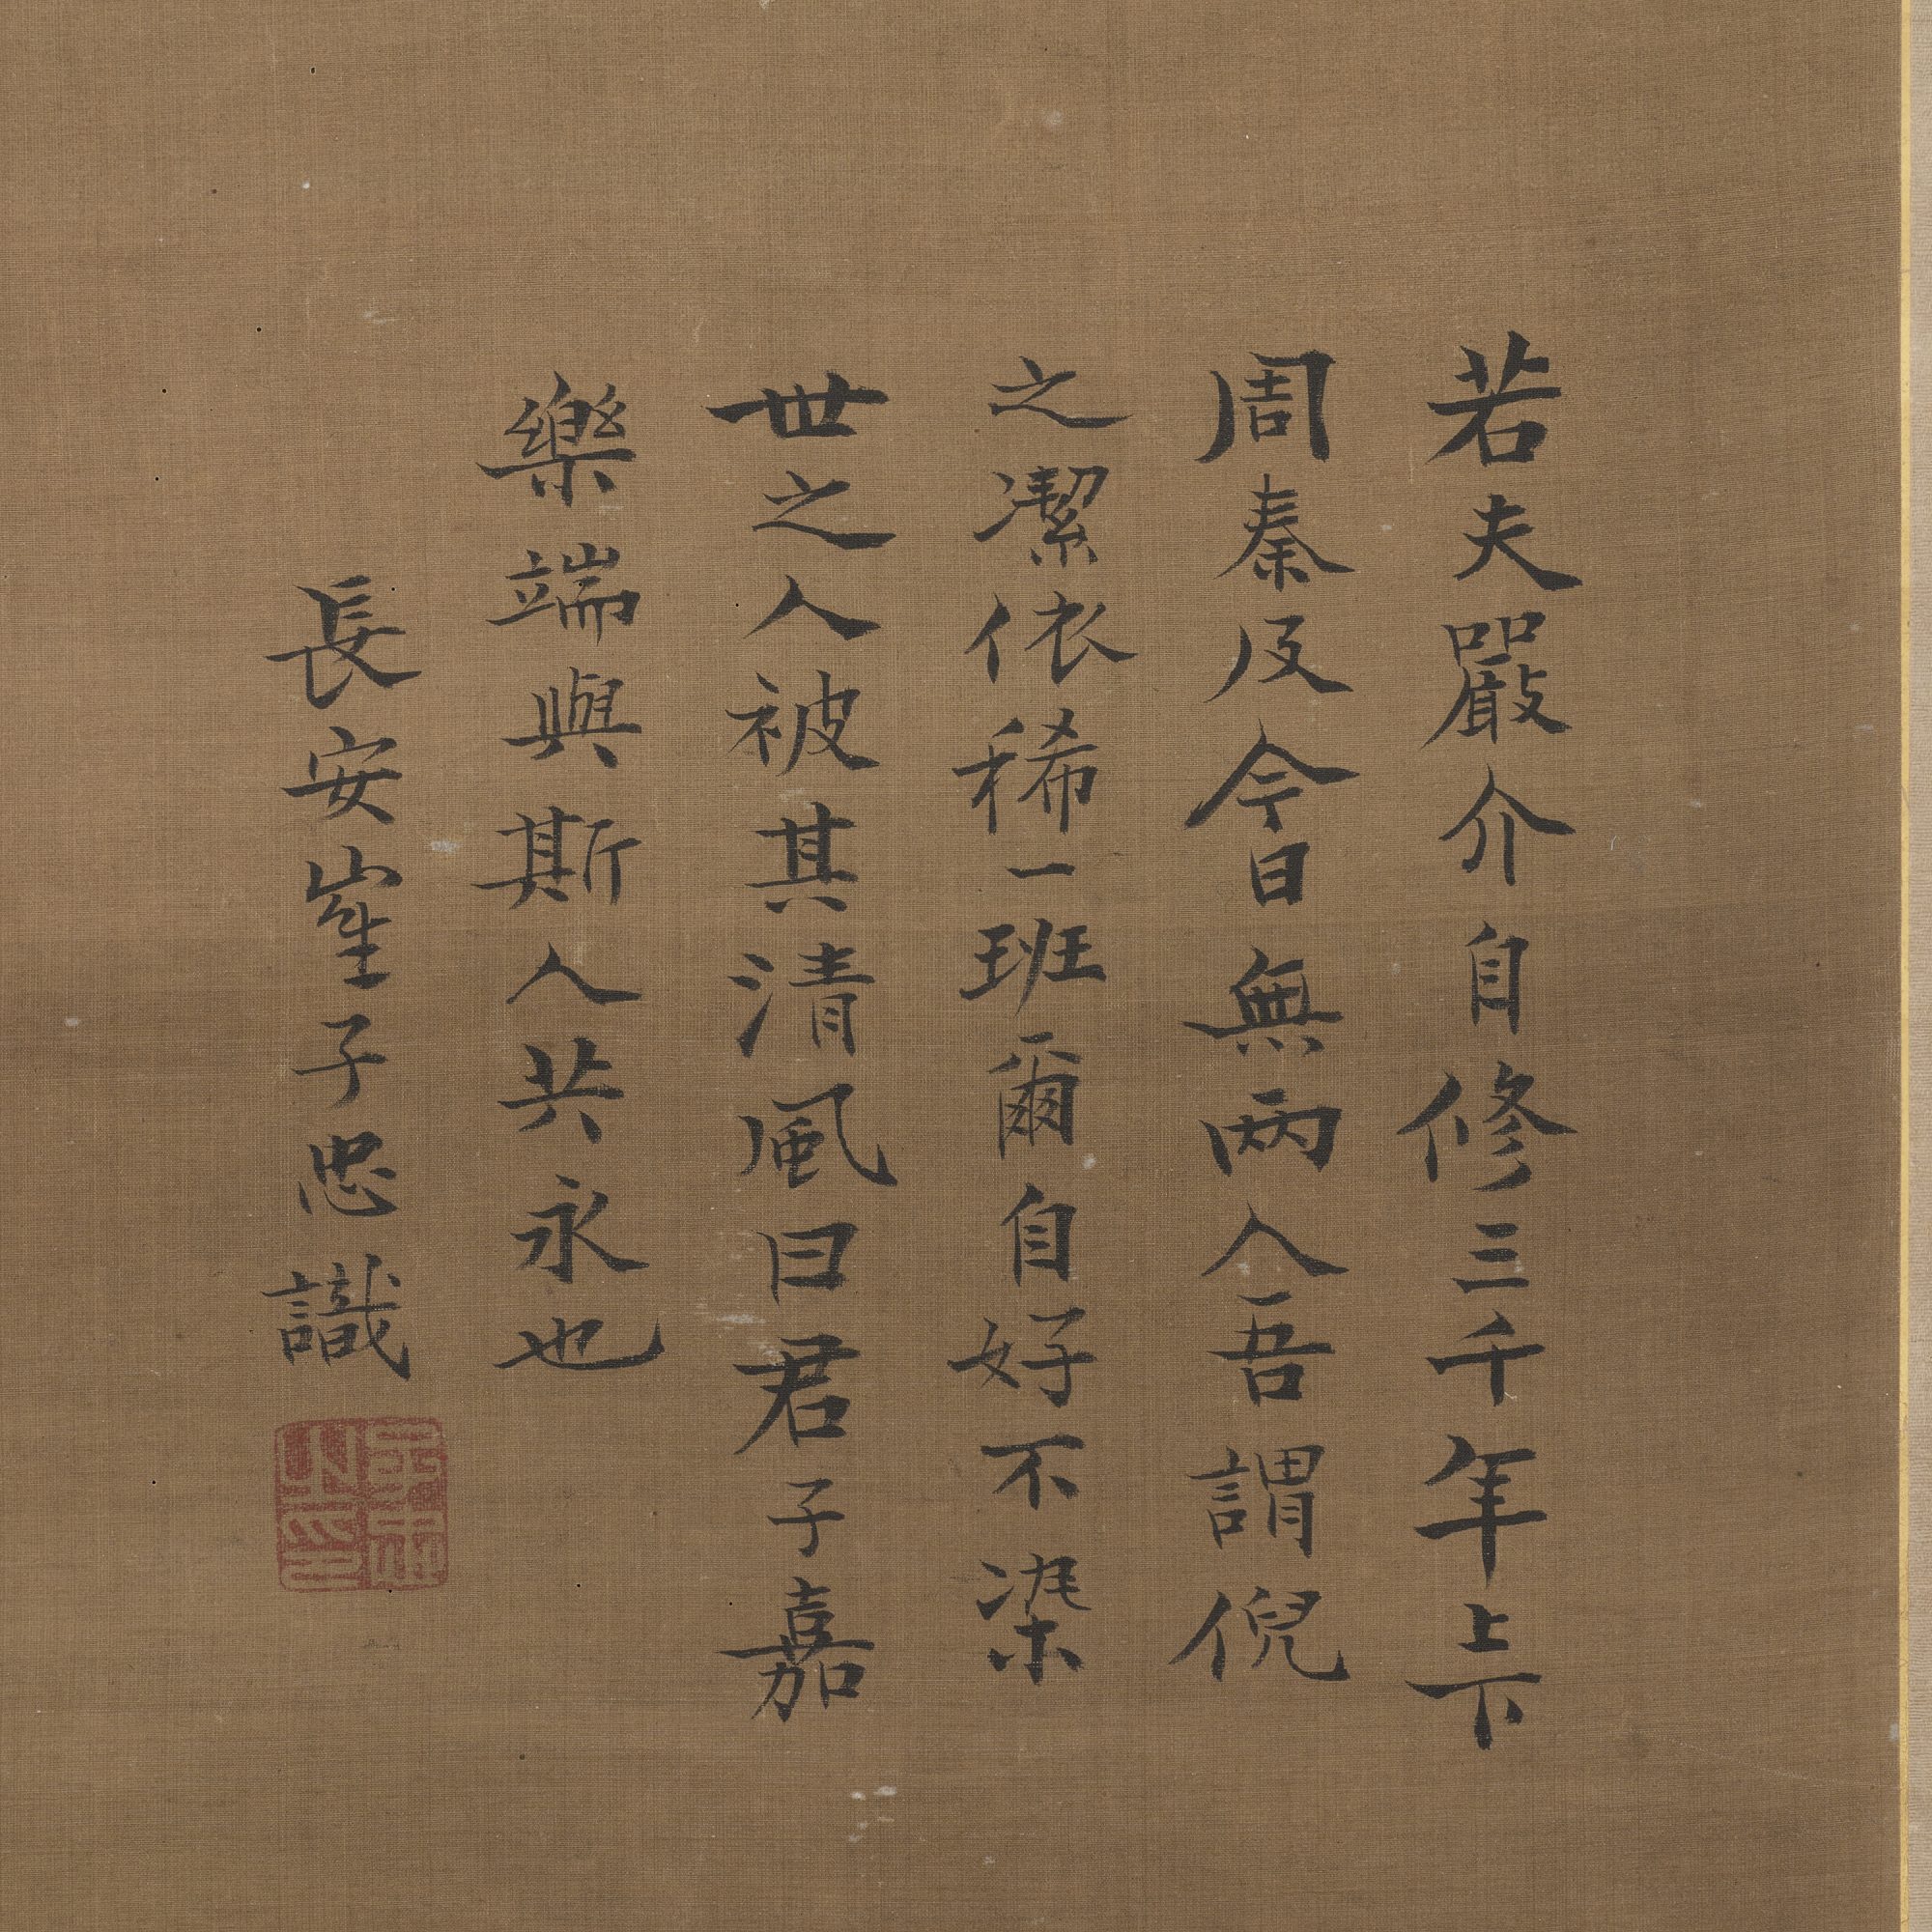 若夫嚴介自修三千年上下
周秦及今日無兩人吾謂倪
之潔依稀一班爾自好不染
世之人被其清風曰君子嘉
樂端與斯人共永也
長安崔子忠識